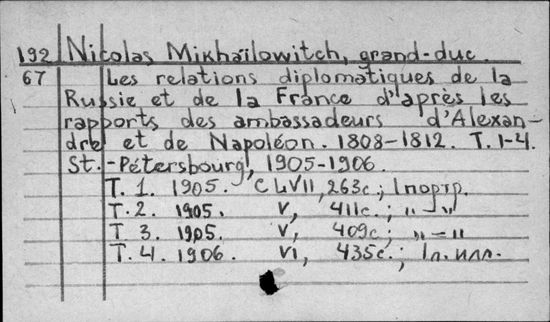 192 Nicolas Mikhaïlowitch, grand-duc.
67 Les relations diplomatiques de la
Russie et de la France d'après les
rapports des ambassadeurs d'Alexan-
dre et de Napoléon. 1808-1812. T. 1-4.
St.-Pétersbourg, 1905-1906.
T. 1. 1905. CLVII, 263c.; 1 портр.
T. 2. 1905. V, 411c.; „ — „
T. 3. 1905. V, 409c.; „ — „
T. 4. 1906. VI, 435c.; 1 л. илл.